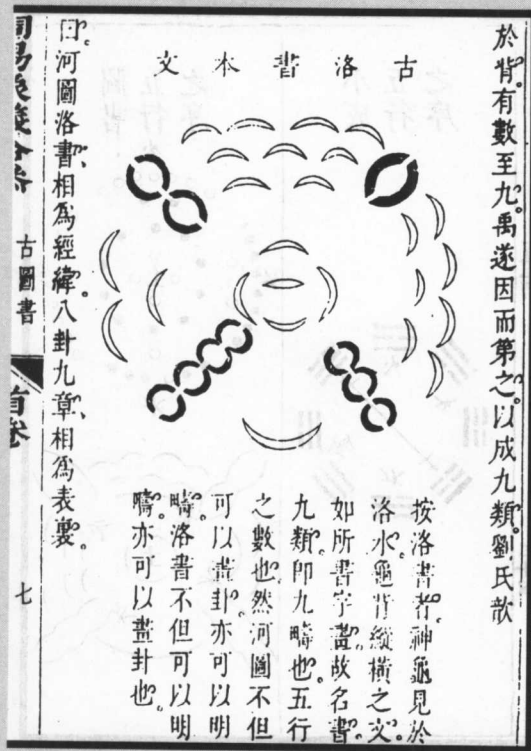 於背。有數至九。禹遂因而第之。以成九類。劉氏歆
古洛書本文
按洛書者。神龜見於
洛水。龜背縱橫之文。
如所書字畫。故名書。
九類。卽九疇也。五行
之數也。然河圖不但
可以畫卦。亦可以明
疇。洛書不但可以明
疇。亦可以畫卦也。
曰。河圖洛書、相爲經緯。八卦九章、相爲表裏。
古圖書
首卷
七